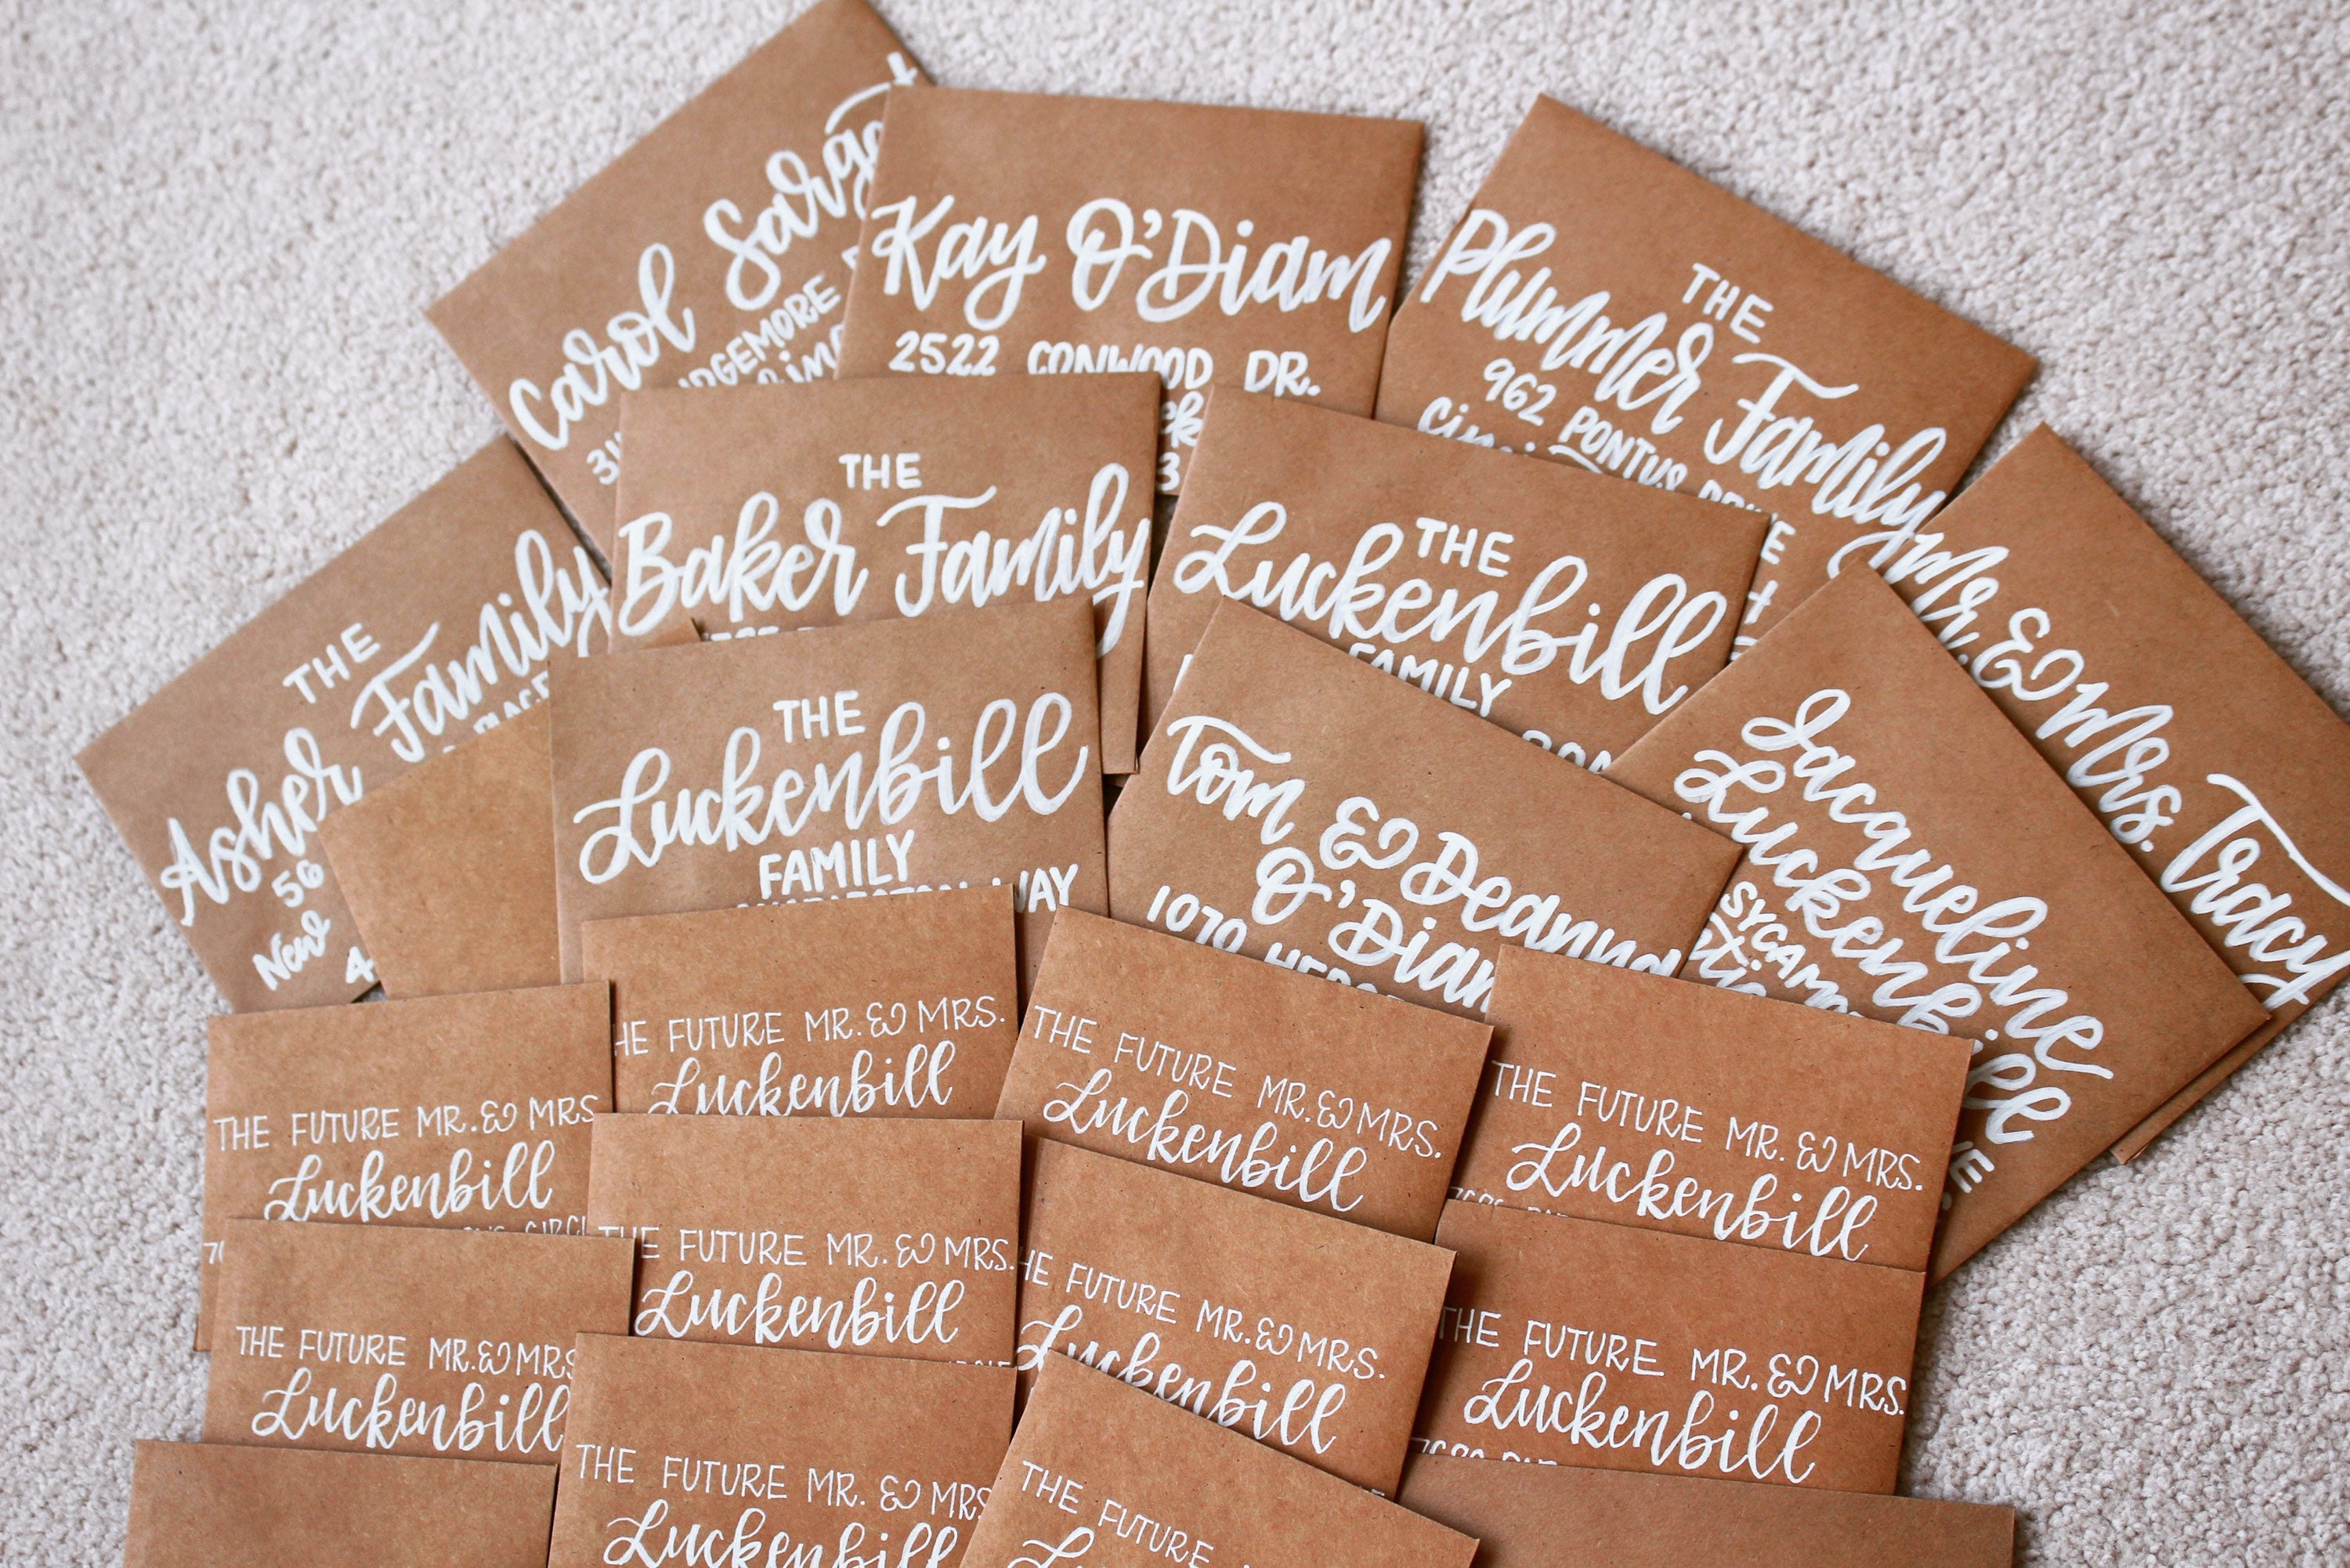 Carol
Kay O'Diam
2522 CONWOOD DR.
THE
Plummer Family
962 PONTUS
THE
Baker Family
THE
Luckenbill
FAMILY
Mr. & Mrs. Tracy
THE
Asher Family
56
New
4
THE
Luckenbill
FAMILY
WAY
Tom & Deanna
O'Diam
1070
Jacqueline
Luckenbill
THE FUTURE MR. & MRS.
Luckenbill
FUTURE MR. & MRS.
Luckenbill
THE FUTURE MR. & MRS.
Luckenbill
THE FUTURE MR. & MRS.
Luckenbill
THE FUTURE MR. & MRS.
Luckenbill
THE FUTURE MR. & MRS.
Luckenbill
FUTURE MR. & MRS.
Luckenbill
THE FUTURE MR. & MRS.
Luckenbill
THE FUTURE MR. & MRS
Luckenbill
THE FUTURE